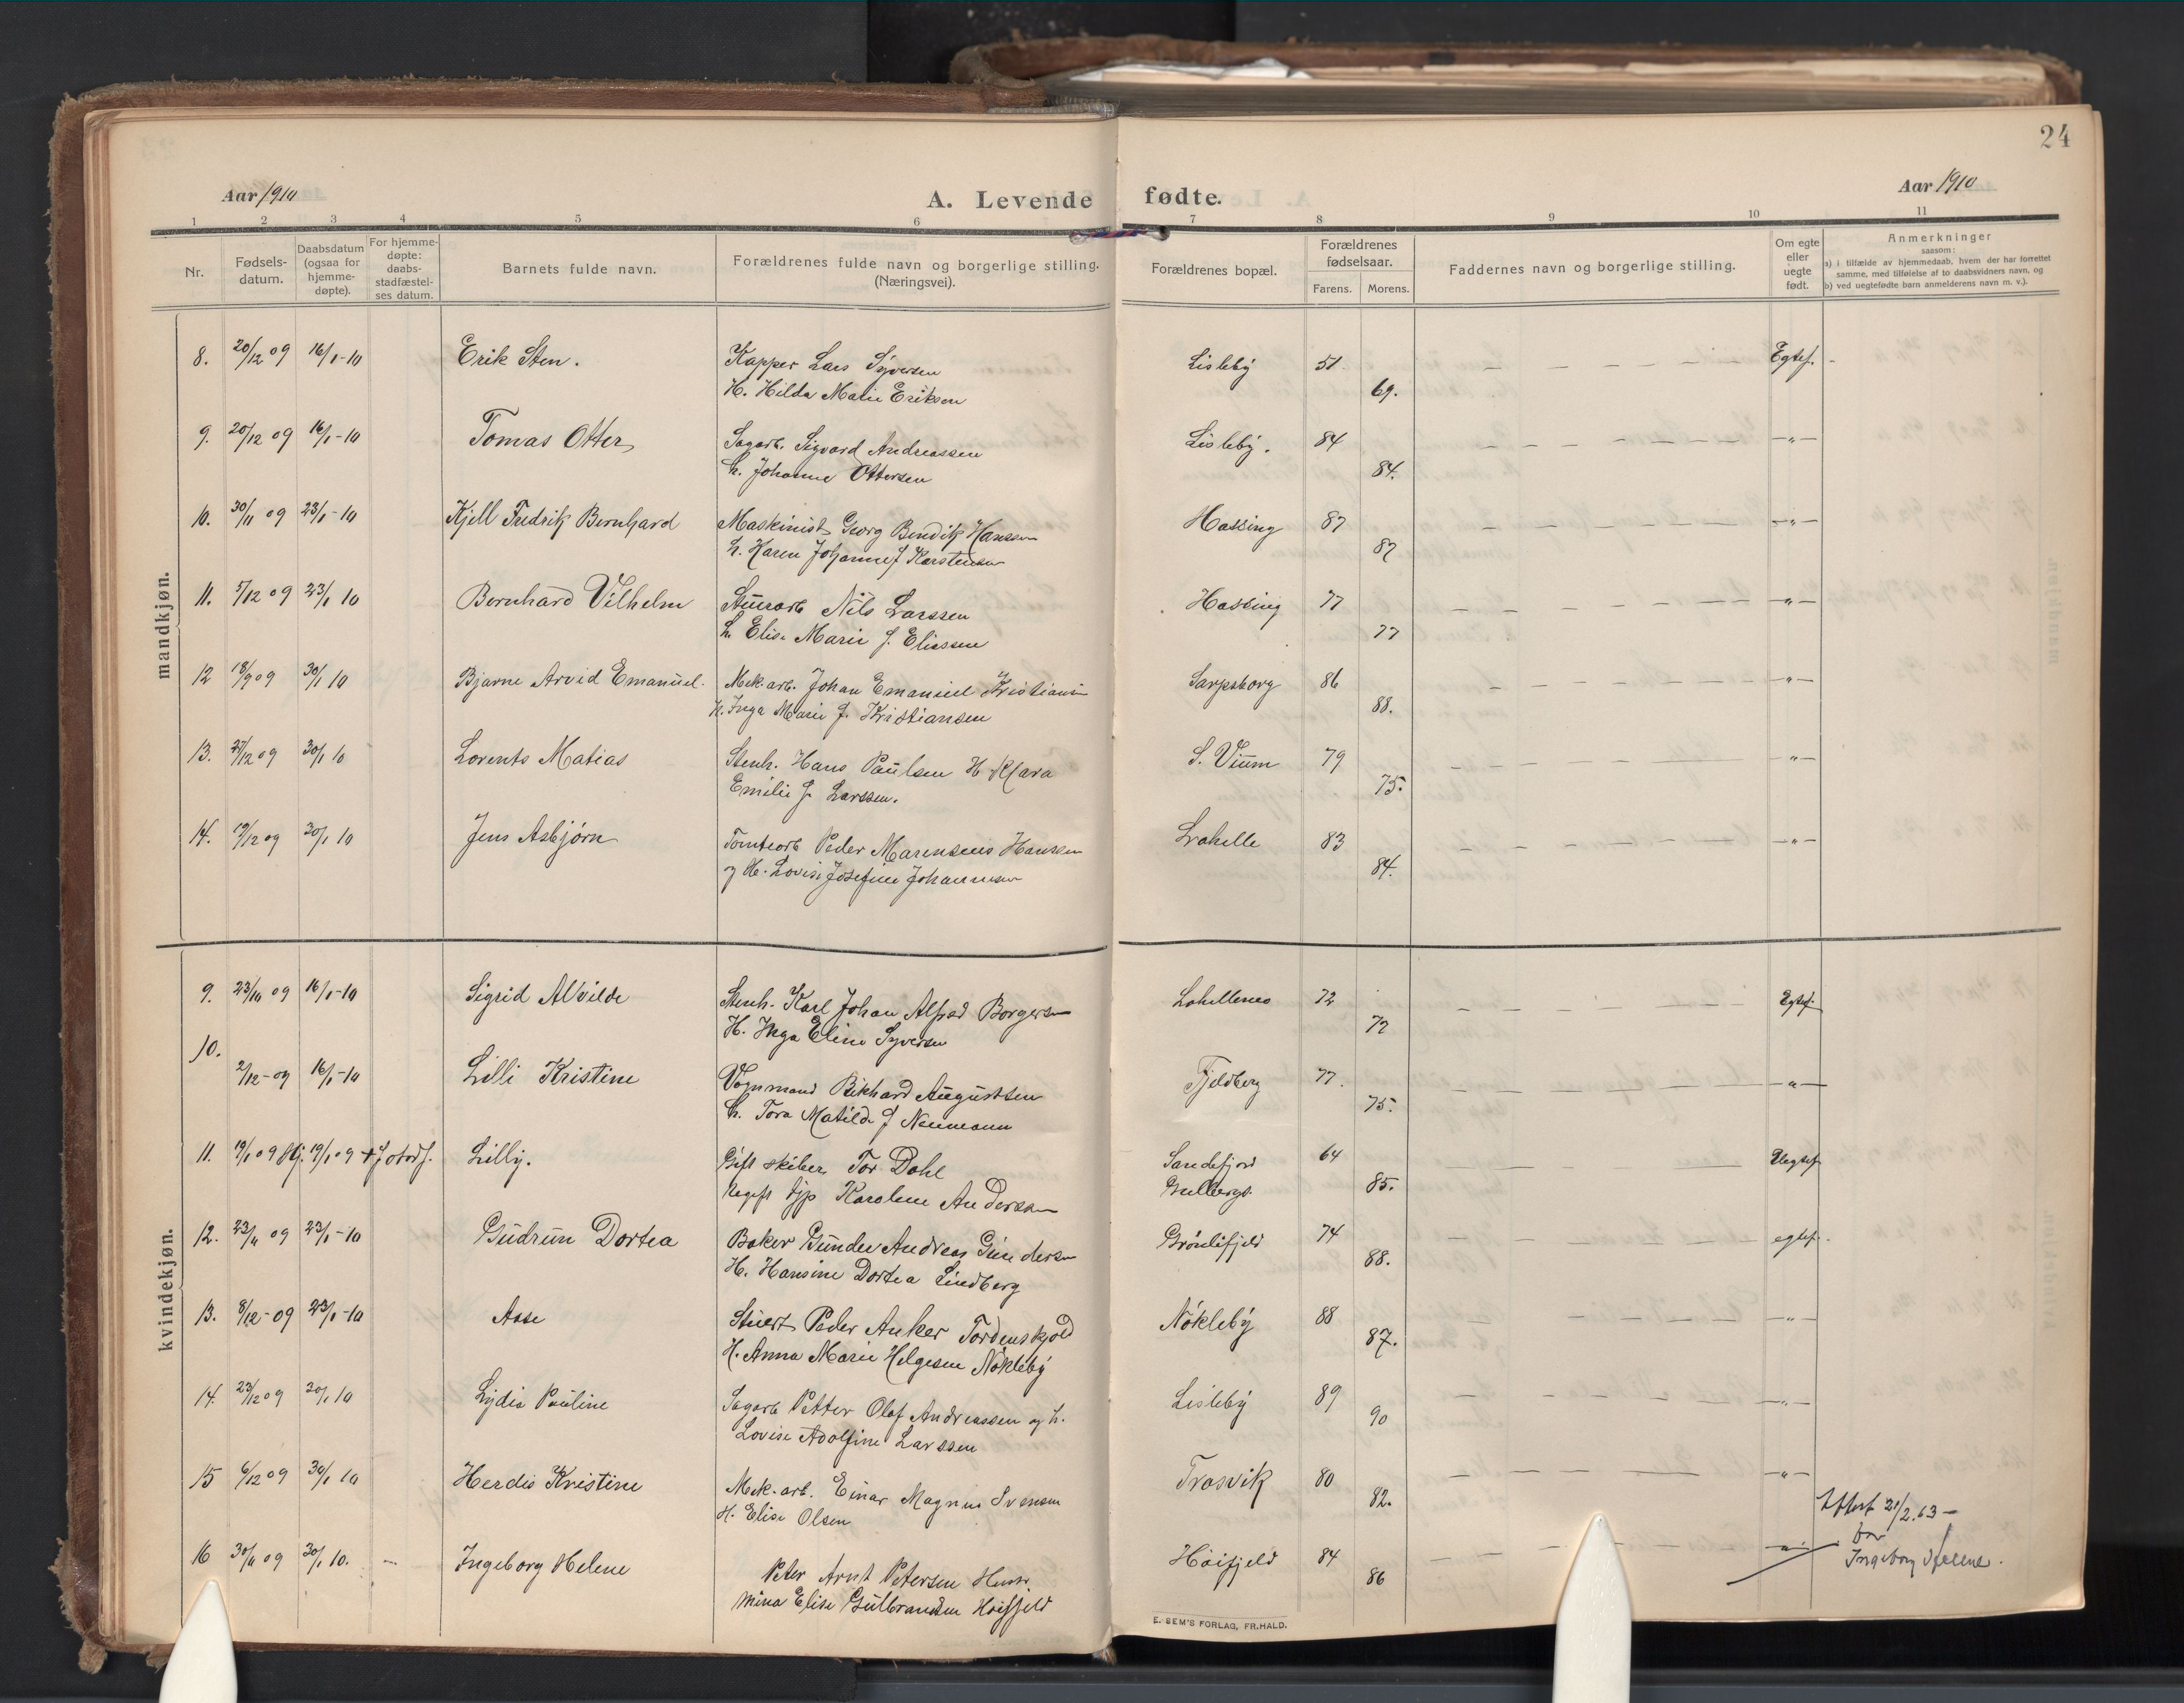 24
Aar 1910
A. Levende fødte.
Aar 1910
1 2 3 4 5 6 7 8 9 10 11
Nr.
Fødsels-
datum.
Daabsdatum
(ogsaa for
hjemme-
døpte).
For hjemme-
døpte:
daabs-
stadfæstel-
ses datum.
Barnets fulde navn.
Forældrenes fulde navn og borgerlige stilling.
(Næringsvei).
Forældrenes bopæl.
Forældrenes
fødselsaar.
Farens. Morens.
Faddernes navn og borgerlige stilling.
Om egte
eller
uegte
født.
Anmerkninger
saasom:
a) i tilfælde av hjemmedaab, hvem der har forrettet
samme, med tilføielse af to daabsvidners navn, og
b) ved uegtefødte barn anmelderens navn m. v.).
mandkjøn.
8. 20/12 09 16/1-10 Erik Sten. Kapper Lars Syversen Lisleby 51. Egtef.
H. Hilda Marie Eriksen 69.
9. 20/12 09 16/1-10 Tomas Otter Sagarb. Sigvard Andreassen Lisleby. 84 -"-
h. Johanne Ottersen 84.
10. 30/11 09 23/1-10 Kjell Fredrik Bernhard Maskinist Georg Bendik Hansen Hassing 87 -"-
h. Karen Johanne f Karstensen 87
11. 5/12 09 23/1 10 Bernhard Vilhelm Stuerarb Nils Larssen Hassing 77 -"-
h. Elise Marie f. Eliassen 77
12 18/9 09 30/1 10 Bjarne Arvid Emanuel. Mek. arb. Johan Emanuel Kristiansen Sarpsborg 86 -"-
H. Inga Marie f. Kristiansen 88.
13. 27/12 09 30/1 10 Lorents Matias Stenh. Hans Paulsen H. Klara S. Vium 79 -"-
Emilie f. Larssen. 75.
14. 19/12 09 30/1 10 Jens Asbjørn Tomtearb Peder Marensius Hansen Lahelle 83 -"-
og H. Lovise Josefine Johannesen 84.
kvindekjøn.
9. 23/10 09 16/1-10 Sigrid Alvilde Stenh. Karl Johan Alfred Borgersen Lahellenes 72 Egtef.
H. Inga Eline Syversen 72
10. 2/12-09 16/1-10 Lilli Kristine Vognmand Rikhard Augustsen Fjeldberg 77. -"-
h. Tora Matilde f Neumann 75.
11. 19/1 09 Hj. 19/1 09 Lilly. Gift skiber Tor Dahl Sandefjord 64 Uegtef
Ugift tjp Karoline Andersen 85.
12. 23/11 09 23/1-10 Gudrun Dortea Baker Gunder Andreas Gundersen Grønlifjeld 74 egtef.
H. Hansine Dortea Lindberg 88.
13. 8/12-09 23/1-10 Aase Stuert Peder Anker Tordenskjold Nökleby 88 -"-
H. Anna Marie Helgesen Nökleby 87.
14. 23/12 09 30/1 10 Lydia Pauline Sagarb Petter Olaf Andreassen og h. Lisleby 89 -"-
Lovise Adolfine Larssen 90
15 6/12 09 30/1 10 Herdis Kristine Mek. arb. Einar Magnus Svensen Trosvik 80 -"-
H. Elise Olsen 82.
16 30/11 09 30/1 10. — Ingeborg Helene Peter Arnt Petersen Hustr. Høifjeld 84 -"-
Mina Elise Gulbrandsen Høifjeld 86
Attest 21/2.63 —
for
Ingeborg Helene.
E. SEM'S FORLAG, FR.HALD.